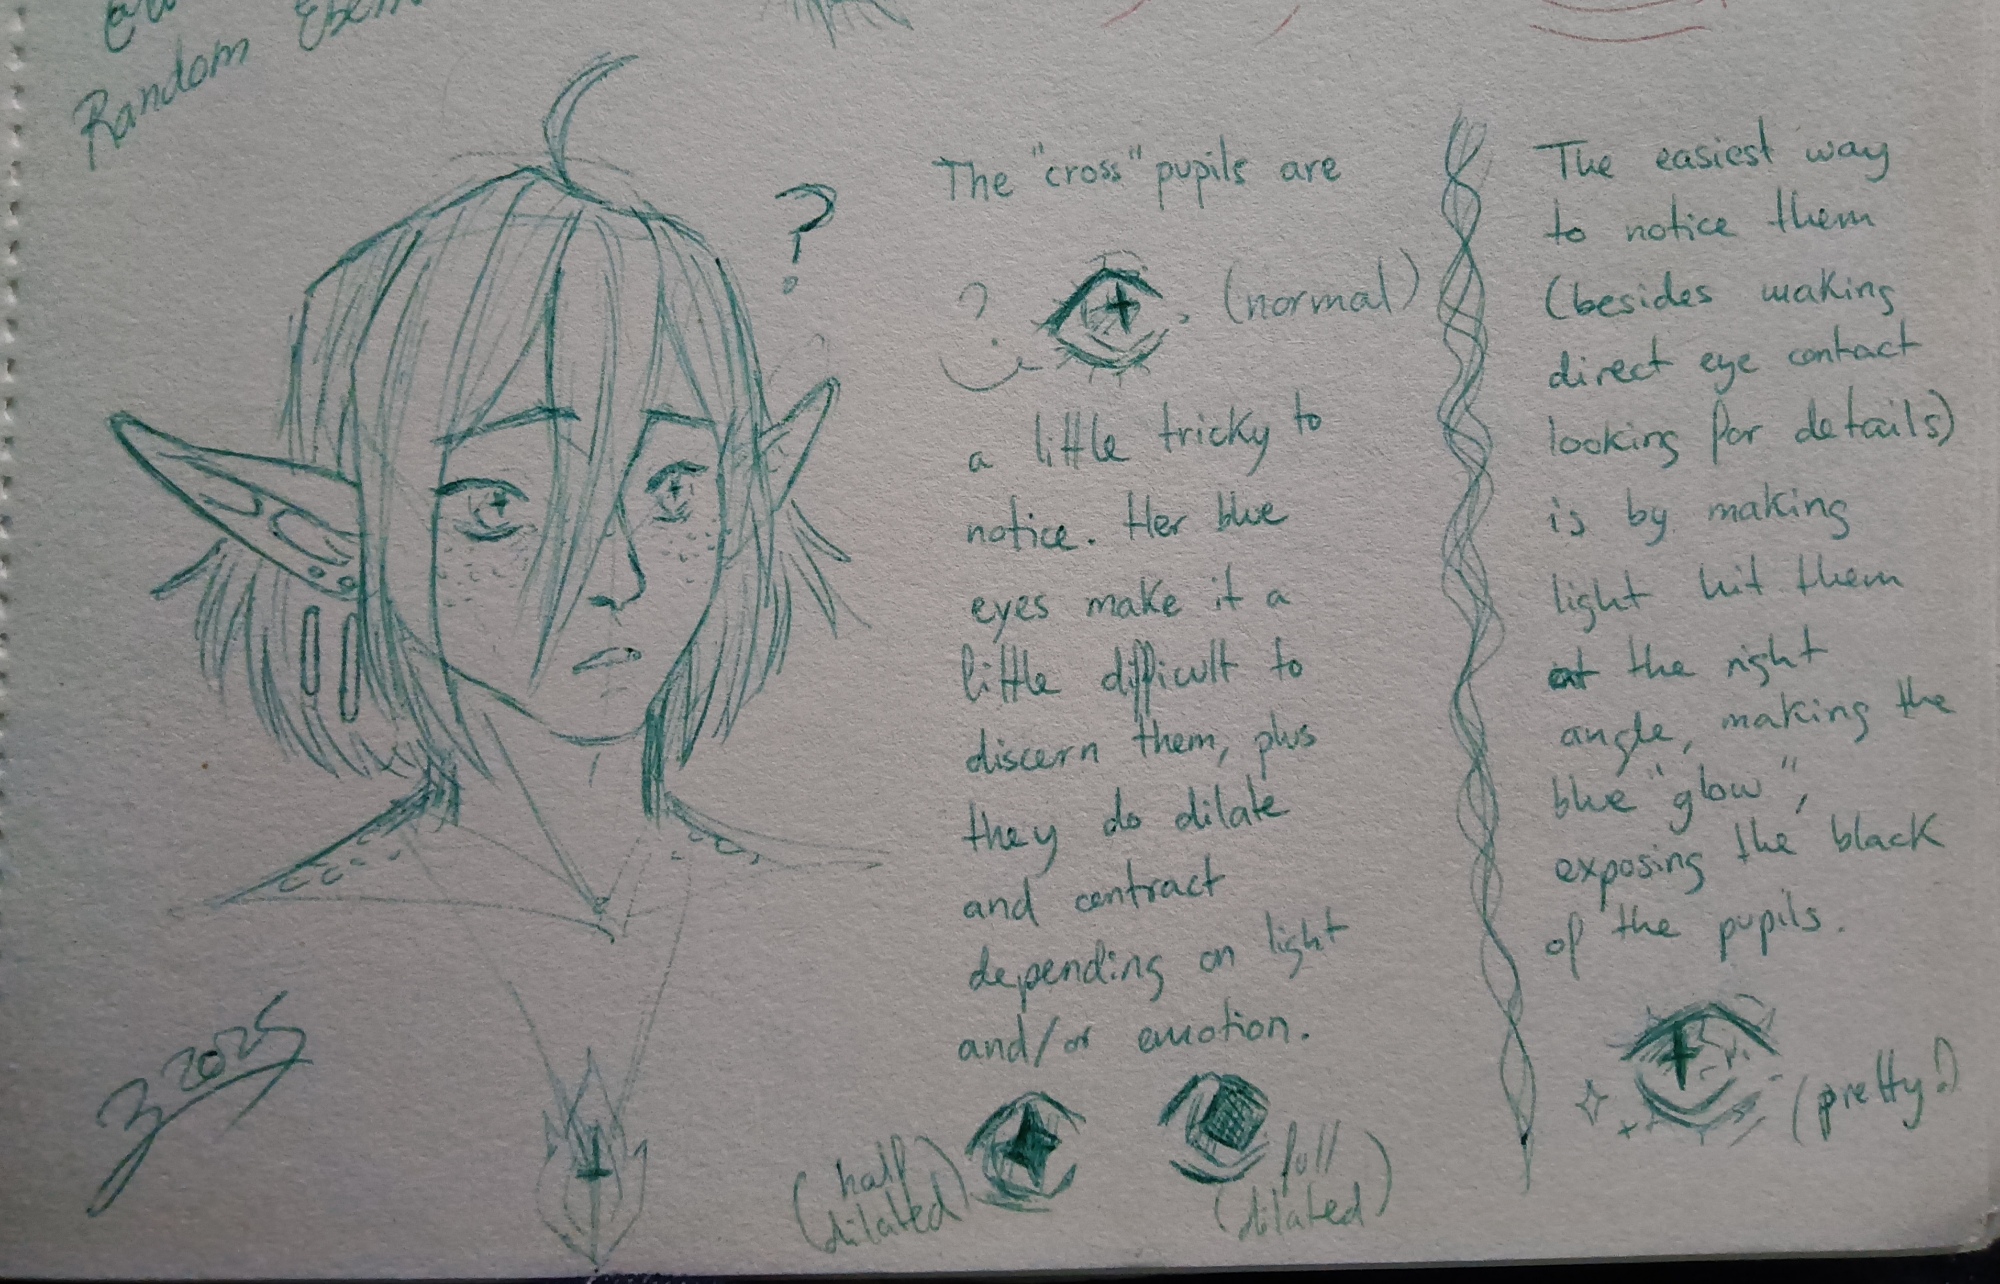 Random
?
The "cross" pupils are
(normal)
a little tricky to
notice. Her blue
eyes make it a
little difficult to
discern them, plus
they do dilate
and contract
depending on light
and/or emotion.
(half
dilated)
(full
dilated)
The easiest way
to notice them
(besides making
direct eye contact
looking for details)
is by making
light hit them
at the right
angle, making the
blue "glow",
exposing the black
of the pupils.
(pretty!)
2025